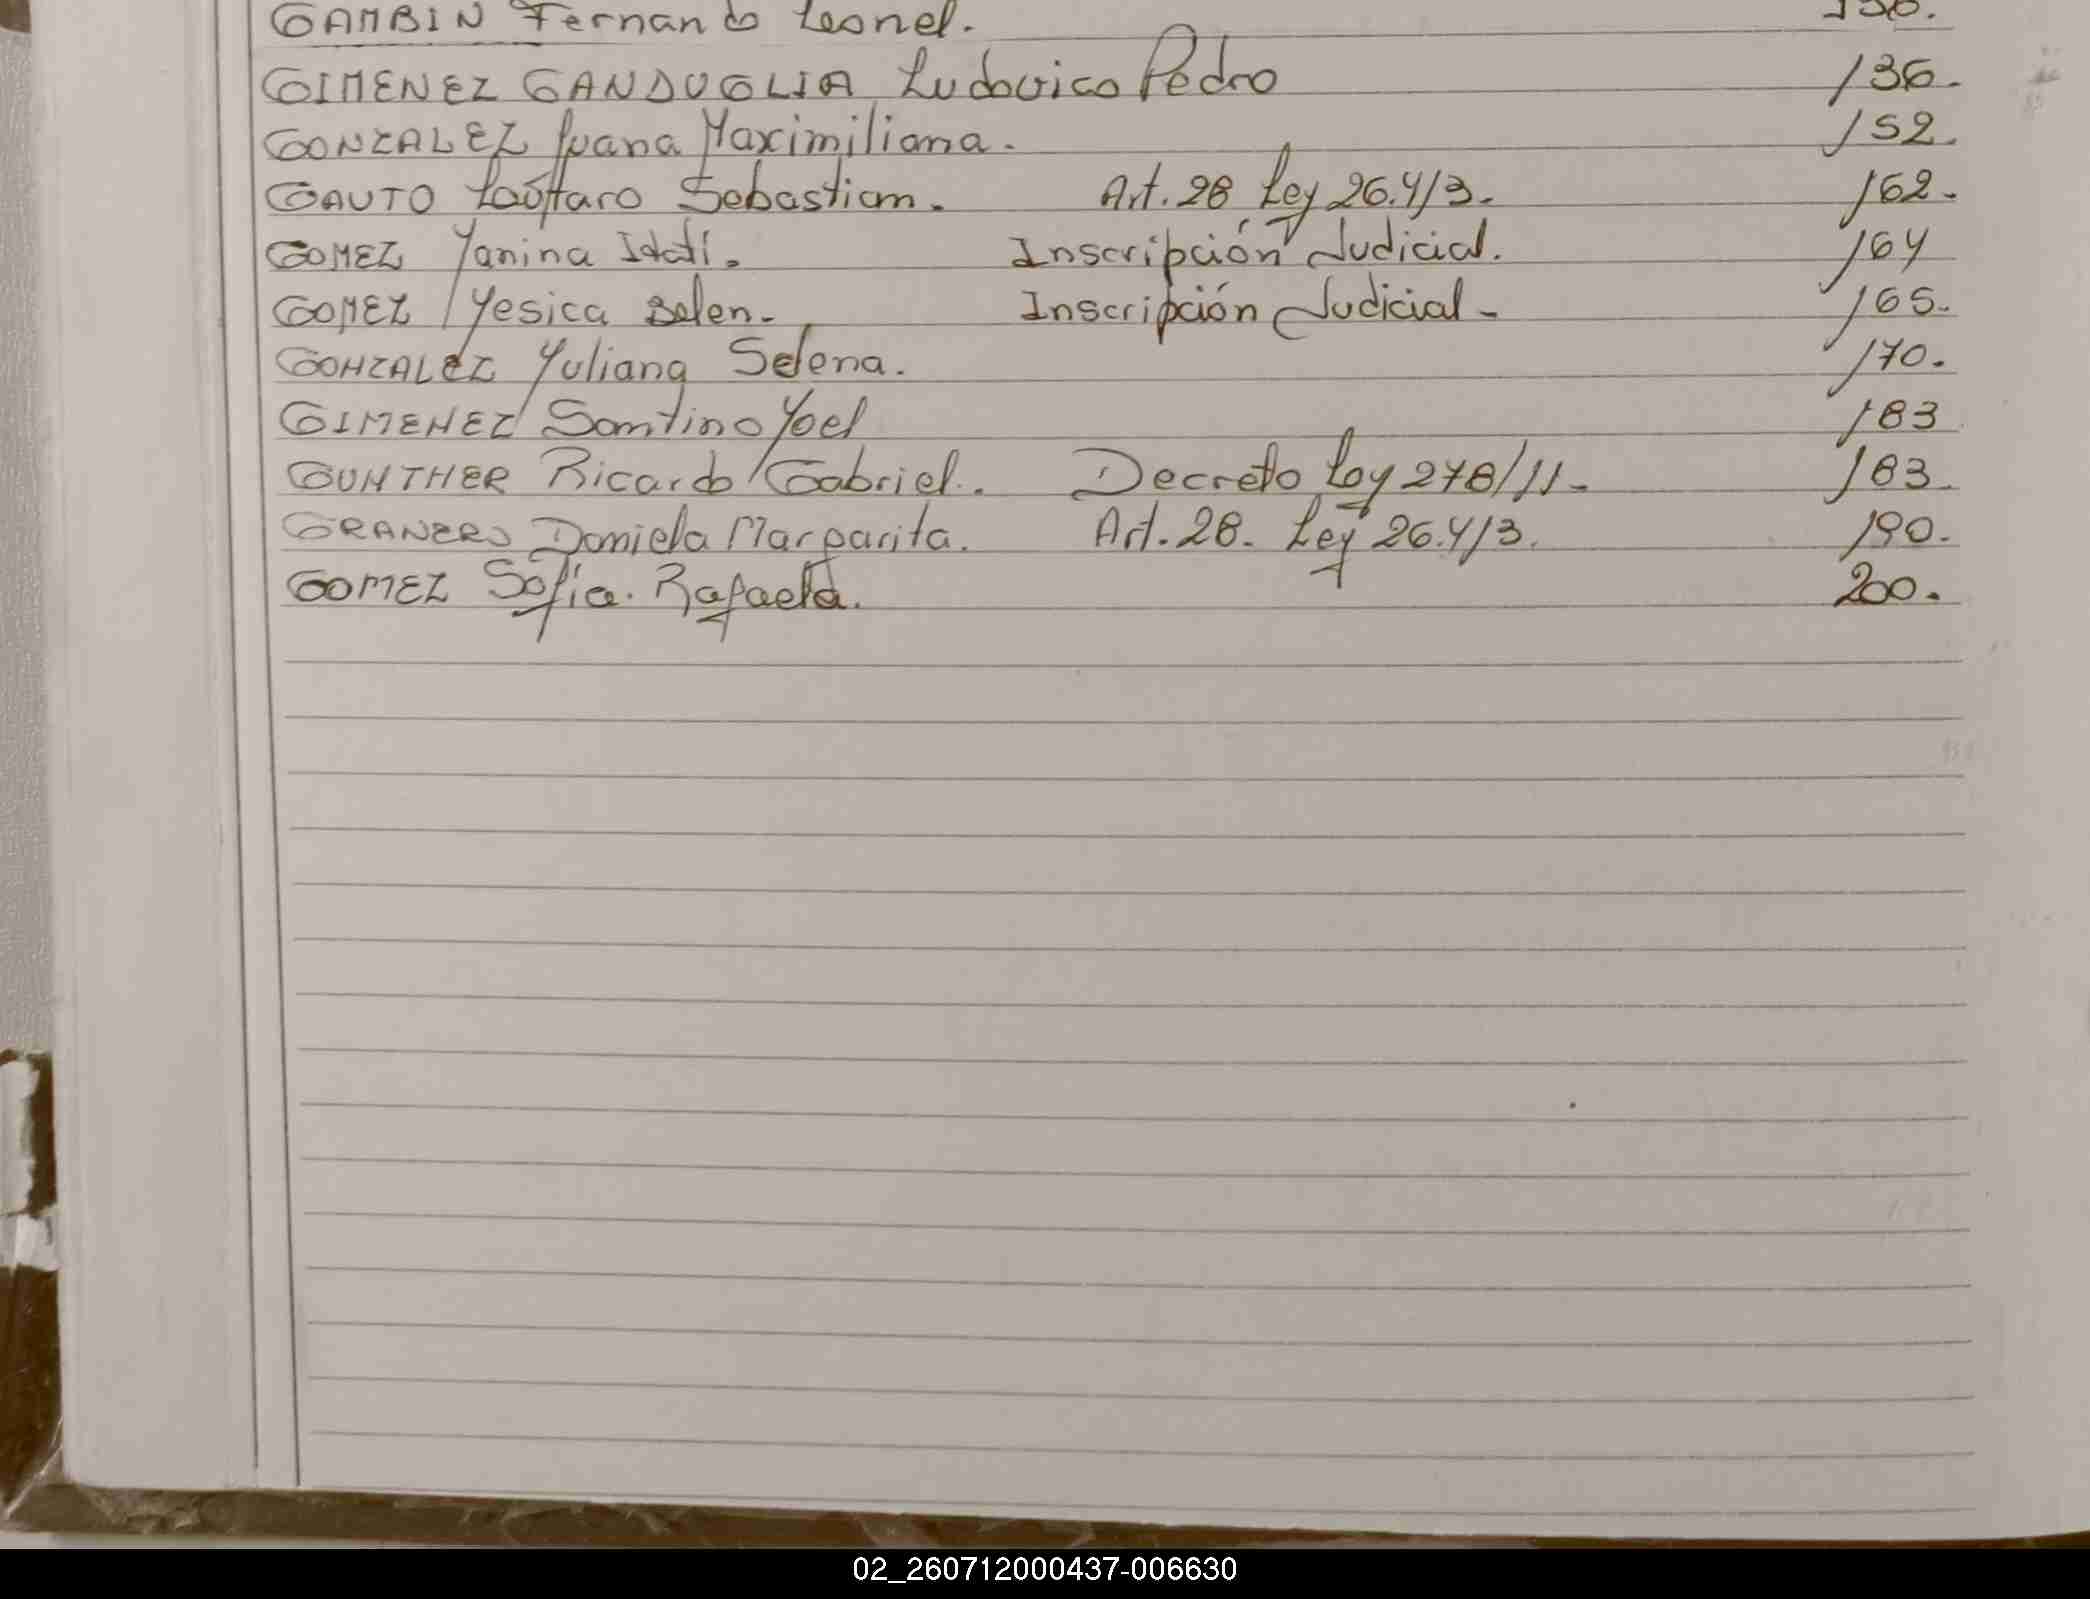 GAMBIN Fernando Leonel.
GIMENEZ GANDUGLIA Ludovico Pedro 136.
GONZALEZ Juana Maximiliana. 152.
GAUTO Laútaro Sebastian. Art. 28 Ley 26.413. 162.
GOMEZ Yanina Itatí. Inscripción Judicial. 164
GOMEZ Yesica Belen. Inscripción Judicial. 165.
GONZALEZ Yuliana Selena. 170.
GIMENEZ Santino Yoel 183
GUNTHER Ricardo Gabriel. Decreto Ley 278/11. 183.
GRANERO Daniela Margarita. Art. 28. Ley 26.413. 190.
GOMEZ Sofía. Rafaela. 200.
02_260712000437-006630